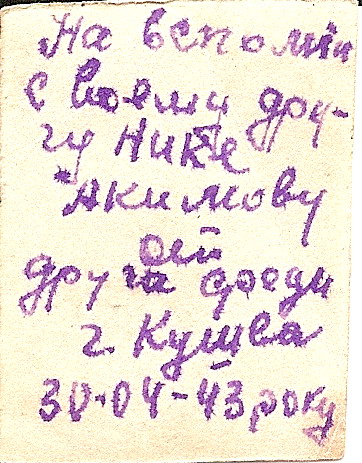 На вспомін
с воему дру-
гу Нике
Акимову
от
друга Феди
г. Кушва
30-04-43 року